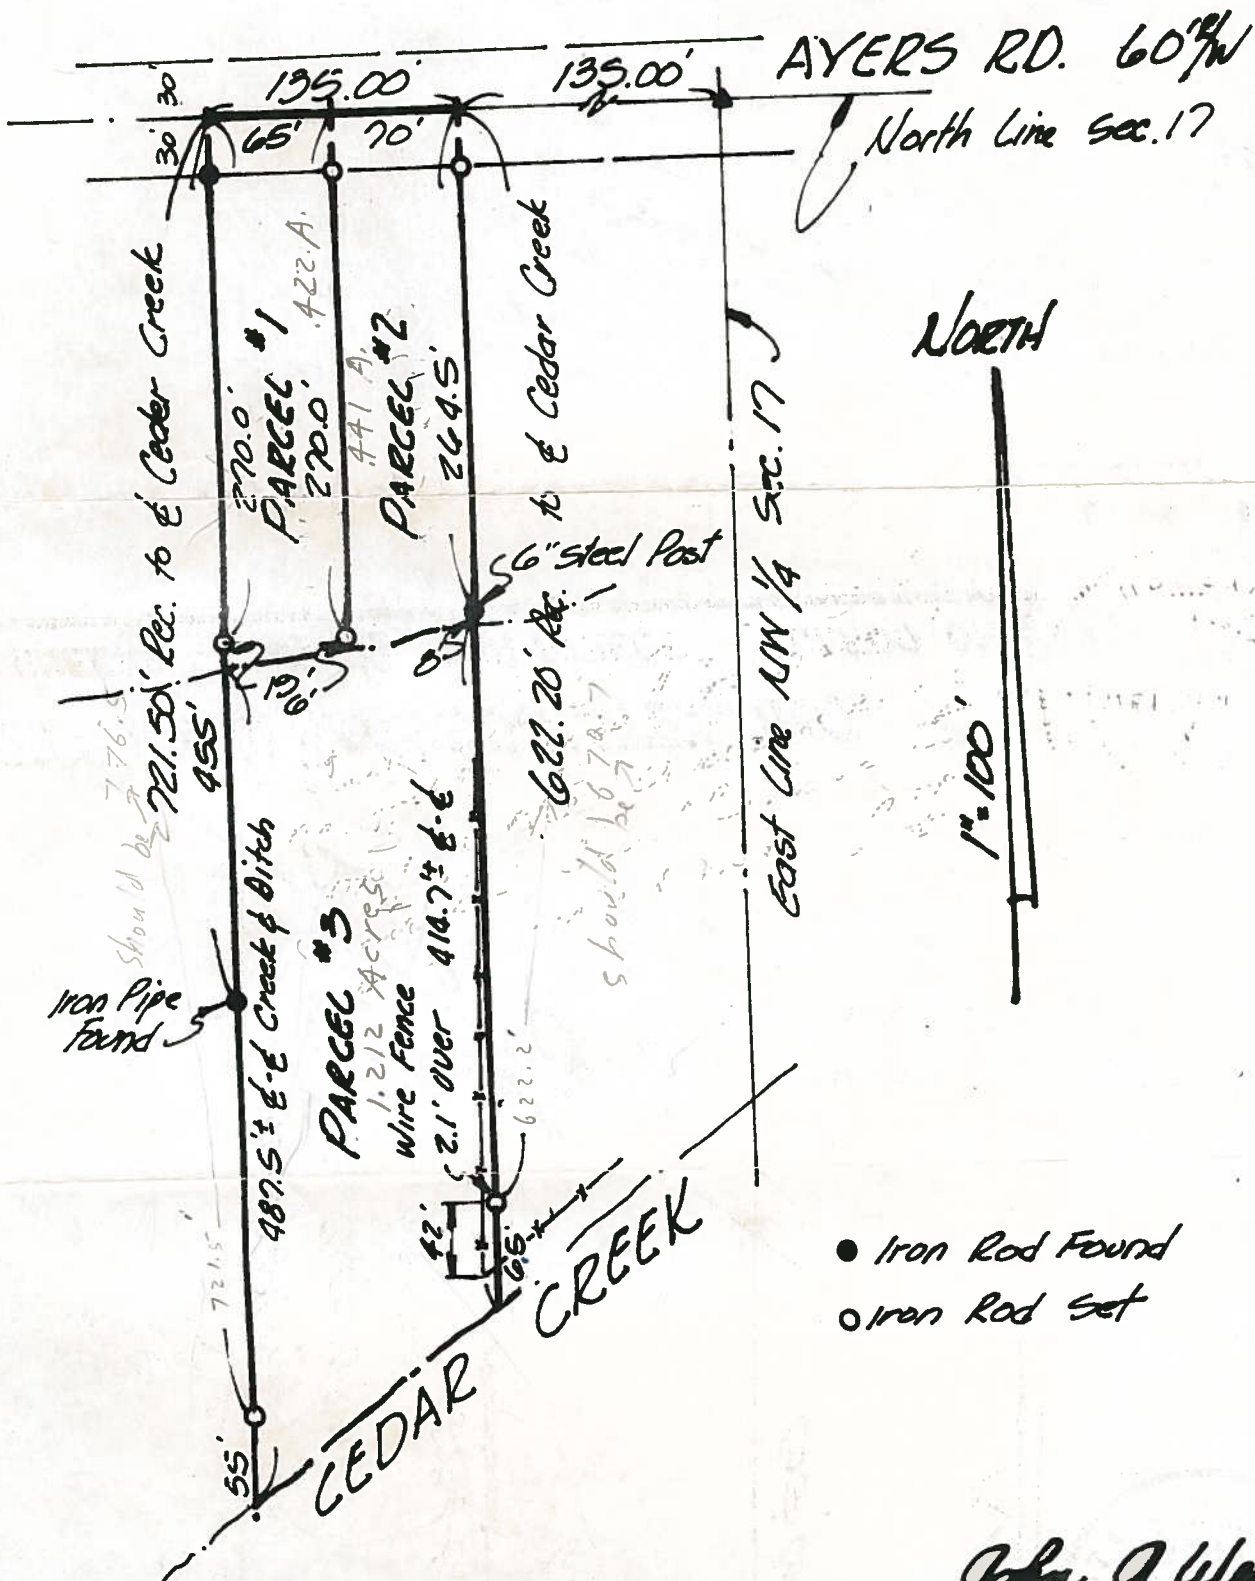 AYERS RD. 60' R/W
North Line Sec. 17
135.00'
135.00'
30'
30'
65'
70'
721.50' Rec. to ℄ Cedar Creek
should be 776.5
270.0'
PARCEL #1
270.0'
.422 A.
.441 A.
PARCEL #2
264.5'
622.20' Rec. to ℄ Cedar Creek
should be 6727
6" Steel Post
East Line NW 1/4 Sec. 17
NORTH
1" = 100'
455'
Iron Pipe
Found
487.5'± ℄-℄ Creek & Ditch
PARCEL #3
1.212 Acres
Wire Fence
2.1' over
414.7'± ℄-℄
622.2'
721.5
42'
65'
55'
CEDAR CREEK
● Iron Rod Found
○ Iron Rod Set